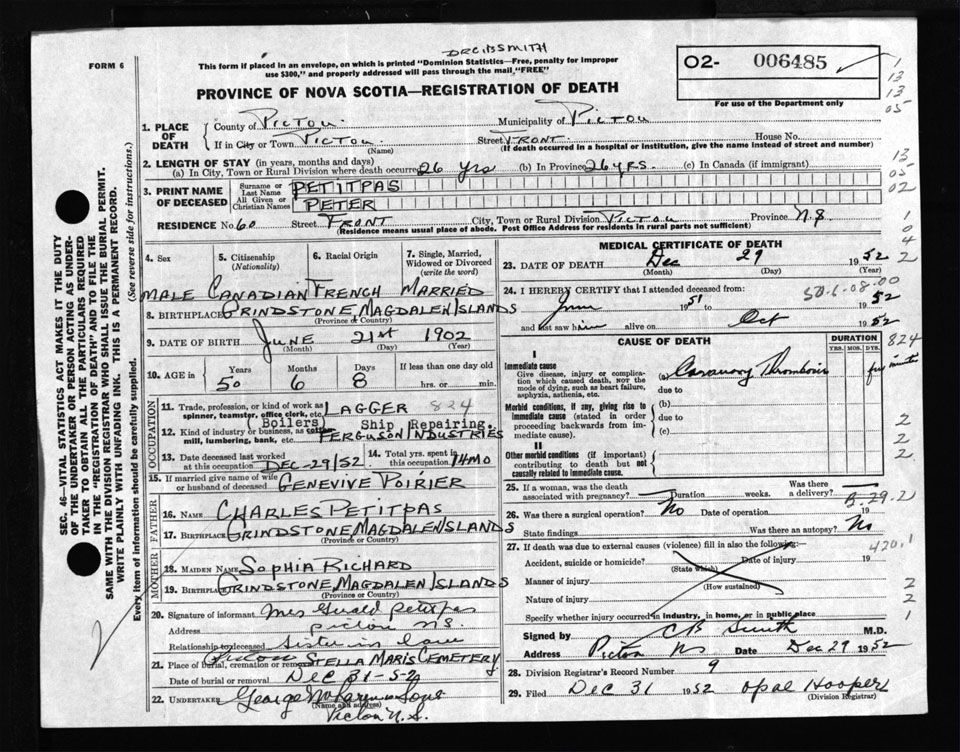 DR. C.B. SMITH
FORM 6
This form if placed in an envelope, on which is printed "Dominion Statistics—Free, penalty for improper
use $300," and properly addressed will pass through the mail "FREE"
O2- 006485
For use of the Department only
PROVINCE OF NOVA SCOTIA—REGISTRATION OF DEATH
1
13
13
05
1. PLACE OF DEATH
County of PICTOU. Municipality of PICTOU
If in City or Town PICTOU Street FRONT. House No.
(Name) (If death occurred in a hospital or institution, give the name instead of street and number)
2. LENGTH OF STAY (in years, months and days)
(a) In City, Town or Rural Division where death occurred 26 yrs (b) In Province 26 YRS. (c) In Canada (if immigrant)
13
05
02
3. PRINT NAME OF DECEASED
Surname or Last Name PETITPAS
All Given or Christian Names PETER
RESIDENCE No. 60 Street FRONT City, Town or Rural Division PICTOU Province N.S.
(Residence means usual place of abode. Post Office Address for residents in rural parts not sufficient)
1
0
4
2
4. Sex 5. Citizenship (Nationality) 6. Racial Origin 7. Single, Married, Widowed or Divorced (write the word)
MALE CANADIAN FRENCH MARRIED
8. BIRTHPLACE GRINDSTONE, MAGDALEN ISLANDS
(Province or Country)
9. DATE OF BIRTH JUNE 21st 1902
(Month) (Day) (Year)
10. AGE in Years Months Days If less than one day old
50 6 8 hrs. or min.
OCCUPATION
11. Trade, profession, or kind of work as spinner, teamster, office clerk, etc. LAGGER 824
Boilers Ship Repairing.
12. Kind of industry or business, as cotton mill, lumbering, bank, etc. FERGUSON INDUSTRIES
13. Date deceased last worked at this occupation DEC-29/52 14. Total yrs. spent in this occupation 14 MO
15. If married give name of wife or husband of deceased GENEVIVE POIRIER
FATHER
16. NAME CHARLES PETITPAS
17. BIRTHPLACE GRINDSTONE, MAGDALEN ISLANDS
(Province or Country)
MOTHER
18. MAIDEN NAME SOPHIA RICHARD
19. BIRTHPLACE GRINDSTONE, MAGDALEN ISLANDS
(Province or Country)
20. Signature of informant Mrs Gerald Petitpas
Address Pictou N.S.
Relationship to deceased Sister in law
21. Place of burial, cremation or removal Pictou STELLA MARIS CEMETERY
Date of burial or removal DEC 31-52
22. UNDERTAKER George Sons
(Name and address)
Pictou N.S.
MEDICAL CERTIFICATE OF DEATH
23. DATE OF DEATH Dec 29 1952
(Month) (Day) (Year)
24. I HEREBY CERTIFY that I attended deceased from:
50-6-08-00
1951 to 1952
and last saw him alive on Oct 1952
CAUSE OF DEATH
DURATION
YRS. MOS. DYS.
824
I
Immediate cause
Give disease, injury or complication which caused death, NOT the mode of dying, such as heart failure, asphyxia, asthenia, etc.
(a) Coronary Thrombosis
due to
Morbid conditions, if any, giving rise to immediate cause (stated in order proceeding backwards from immediate cause).
(b)
due to
(c)
II
Other morbid conditions (if important) contributing to death but not causally related to immediate cause.
2
2
2
25. If a woman, was the death associated with pregnancy? Duration weeks. Was there a delivery?
B-29-2
26. Was there a surgical operation? No Date of operation 19
State findings Was there an autopsy? No
27. If death was due to external causes (violence) fill in also the following:—
420.1
Accident, suicide or homicide? Date of injury 19
(State which)
Manner of injury
(How sustained)
Nature of injury
2
2
1
Specify whether injury occurred in industry, in home, or in public place
Signed by C B Smith M.D.
Address Pictou NS Date Dec 29 1952
28. Division Registrar's Record Number 9
29. Filed Dec 31 1952 Opal Hooper
(Division Registrar)
SEC. 46—VITAL STATISTICS ACT MAKES IT THE DUTY
OF THE UNDERTAKER OR PERSON ACTING AS UNDER-
TAKER TO OBTAIN ALL THE PARTICULARS REQUIRED
IN THE "REGISTRATION OF DEATH" AND TO FILE THE
SAME WITH THE DIVISION REGISTRAR WHO SHALL ISSUE THE BURIAL PERMIT.
WRITE PLAINLY WITH UNFADING INK. THIS IS A PERMANENT RECORD.
Every item of information should be carefully supplied. (See reverse side for instructions.)